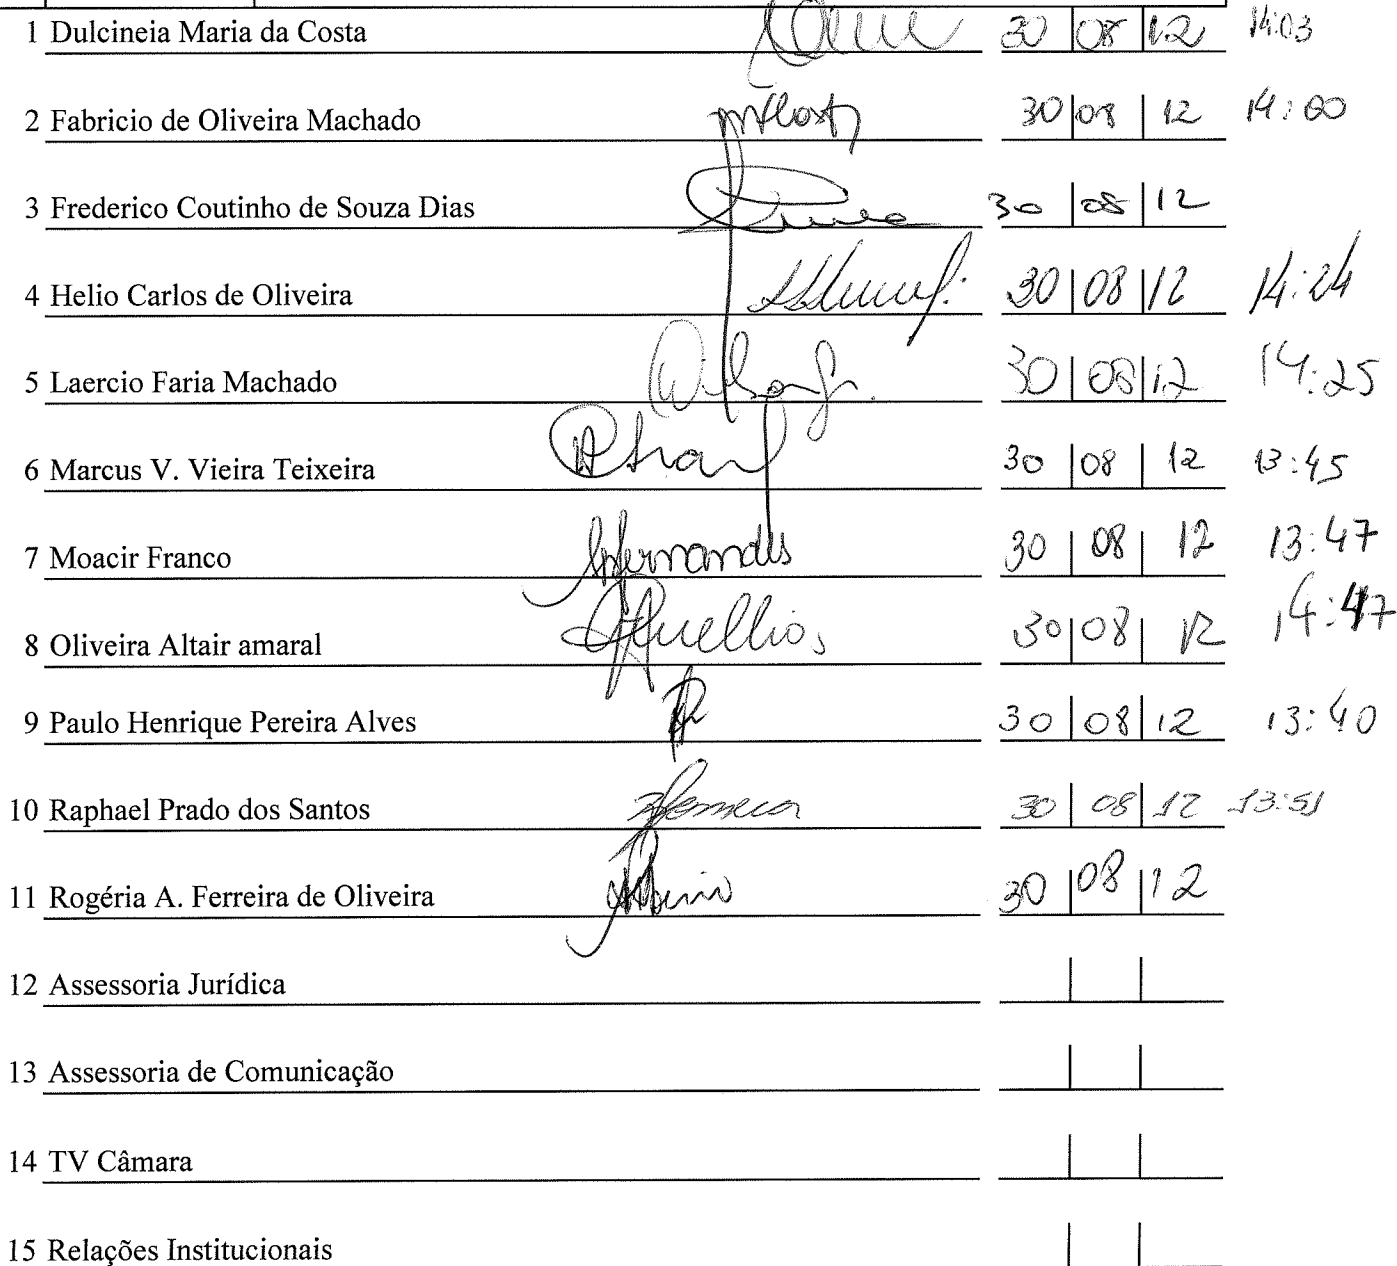 1 Dulcineia Maria da Costa 30 08 12 14:03
2 Fabricio de Oliveira Machado 30 08 12 14:00
3 Frederico Coutinho de Souza Dias 30 08 12
4 Helio Carlos de Oliveira 30 08 12 14:24
5 Laercio Faria Machado 30 08 12 14:25
6 Marcus V. Vieira Teixeira 30 08 12 13:45
7 Moacir Franco 30 08 12 13:47
8 Oliveira Altair amaral 30 08 12 14:47
9 Paulo Henrique Pereira Alves 30 08 12 13:40
10 Raphael Prado dos Santos 30 08 12 13:51
11 Rogéria A. Ferreira de Oliveira 30 08 12
12 Assessoria Jurídica
13 Assessoria de Comunicação
14 TV Câmara
15 Relações Institucionais